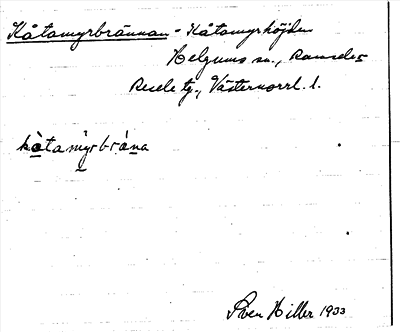 Kåtamyrbrännan - Kåtamyrhöjden
Helgums sn., Ramsele
Resele tg., Västernorrl. l.
kåtamyrbràna
Sven Hiller 1933